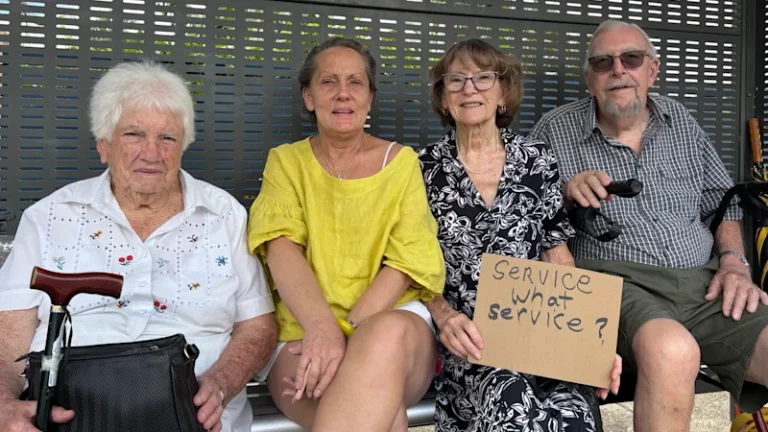 Service
what
service?